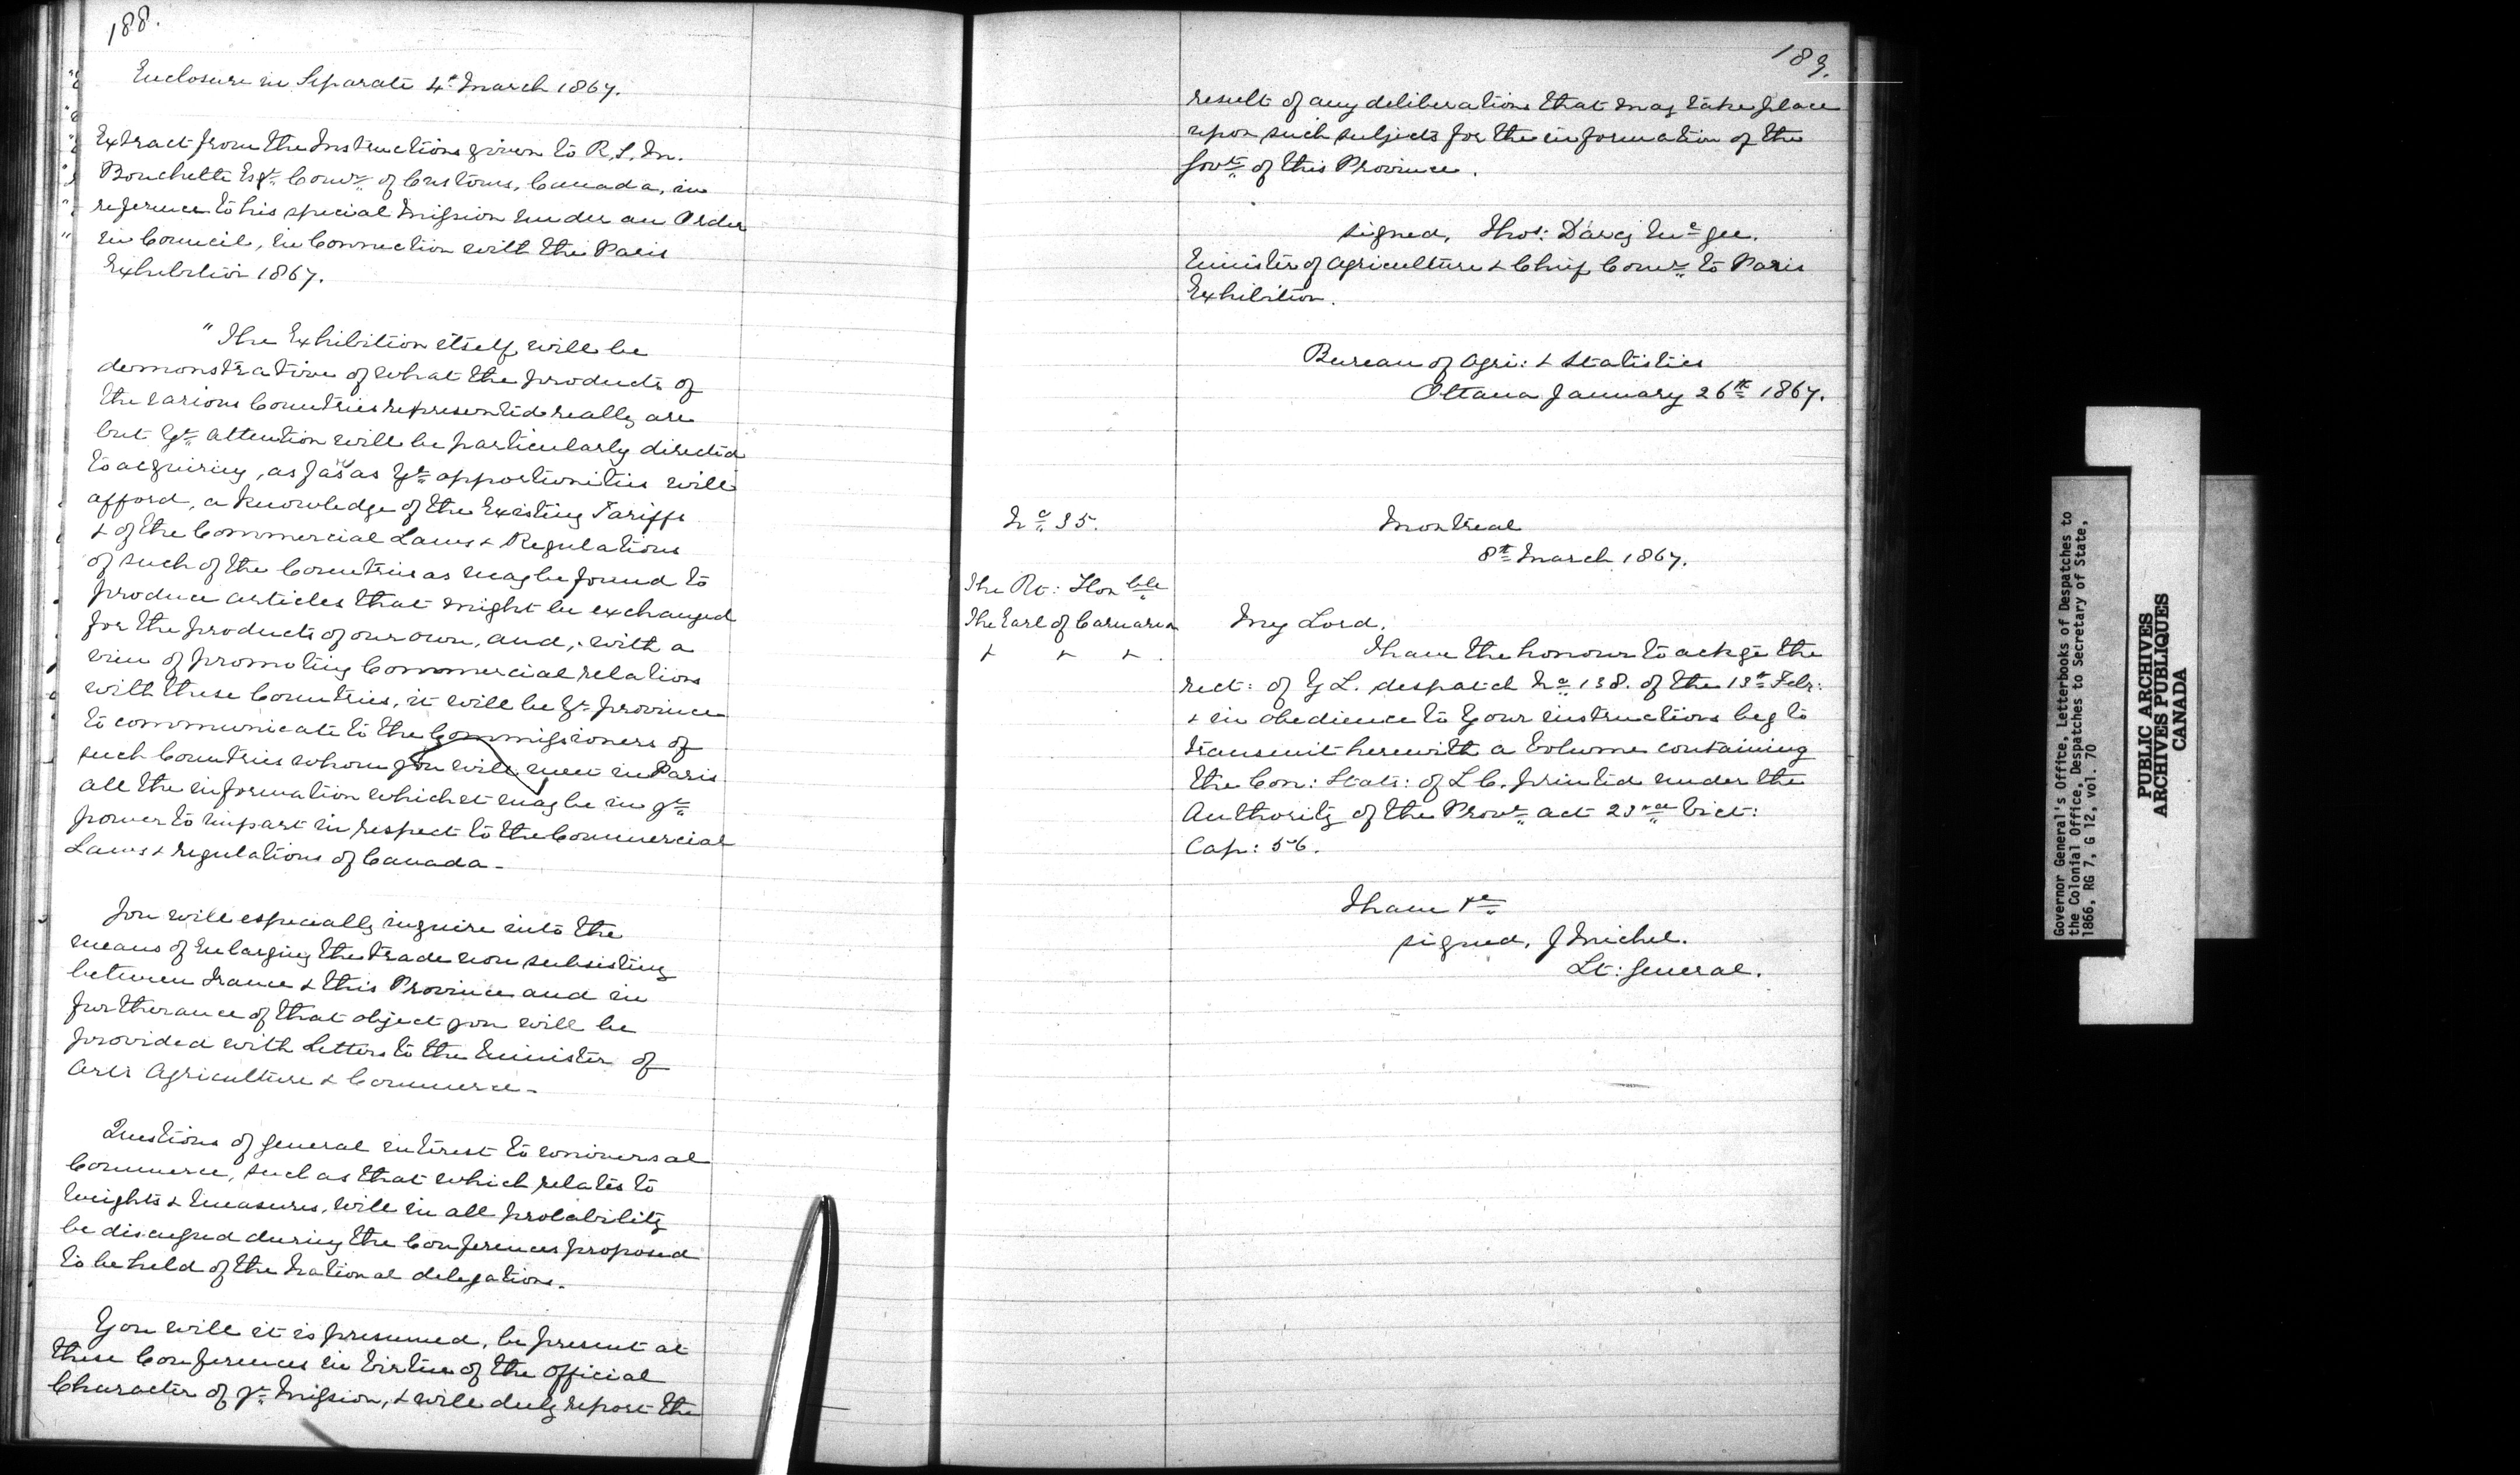 188.
Enclosure in Separate 4th March 1867.
Extract from the Instructions given to R. S. M.
Bouchette Esqr. Comr. of Customs, Canada, in
reference to his special Mission under an Order
in Council, in Connection with the Paris
Exhibition 1867.
"The Exhibition itself will be
demonstrative of what the products of
the various Countries represented really are
but Yr. attention will be particularly directed
to acquiring, as far as Yr. opportunities will
afford, a knowledge of the Existing Tariffs
& of the Commercial Laws & Regulations
of such of the Countries as may be found to
produce articles that might be exchanged
for the products of our own, and, with a
view of promoting Commercial relations
with these Countries, it will be Yr. province
to communicate to the Commissioners of
such Countries whom you will meet in Paris
all the information which it may be in yr.
power to impart in respect to the Commercial
Laws & regulations of Canada -
You will especially inquire into the
means of Enlarging the trade now subsisting
between France & this Province and in
furtherance of that object you will be
provided with Letters to the Minister of
Arts Agriculture & Commerce -
Questions of general interest to universal
Commerce, such as that which relates to
Weights & Measures, will in all probability
be discussed during the Conferences proposed
to be held of the National delegations.
You will it is presumed, be present at
these Conferences in Virtue of the Official
Character of yr. Mission, & will duly report the
189.
result of any deliberations that may take place
upon such subjects for the information of the
Govt. of this Province.
signed, Thos: D'arcy McGee.
Minister of Agriculture & Chief Comr. to Paris
Exhibition.
Bureau of Agri: & Statistics
Ottawa January 26th 1867.
No. 35.
Montreal
8th March 1867.
The Rt: Honble
The Earl of Carnarvon
& & &.
My Lord,
I have the honour to ackge the
rect: of Y L. despatch No. 138. of the 13th Feby:
& in obedience to Your instructions beg to
transmit herewith a Volume containing
the Con: Stats: of L C. printed under the
Authority of the Provl. act 23rd Vict:
Cap: 56.
I have &c
signed, J Michel.
Lt: General.
Governor General's Office, Letterbooks of Despatches to
the Colonial Office, Despatches to Secretary of State,
1866, RG 7, G 12, vol. 70
PUBLIC ARCHIVES
ARCHIVES PUBLIQUES
CANADA